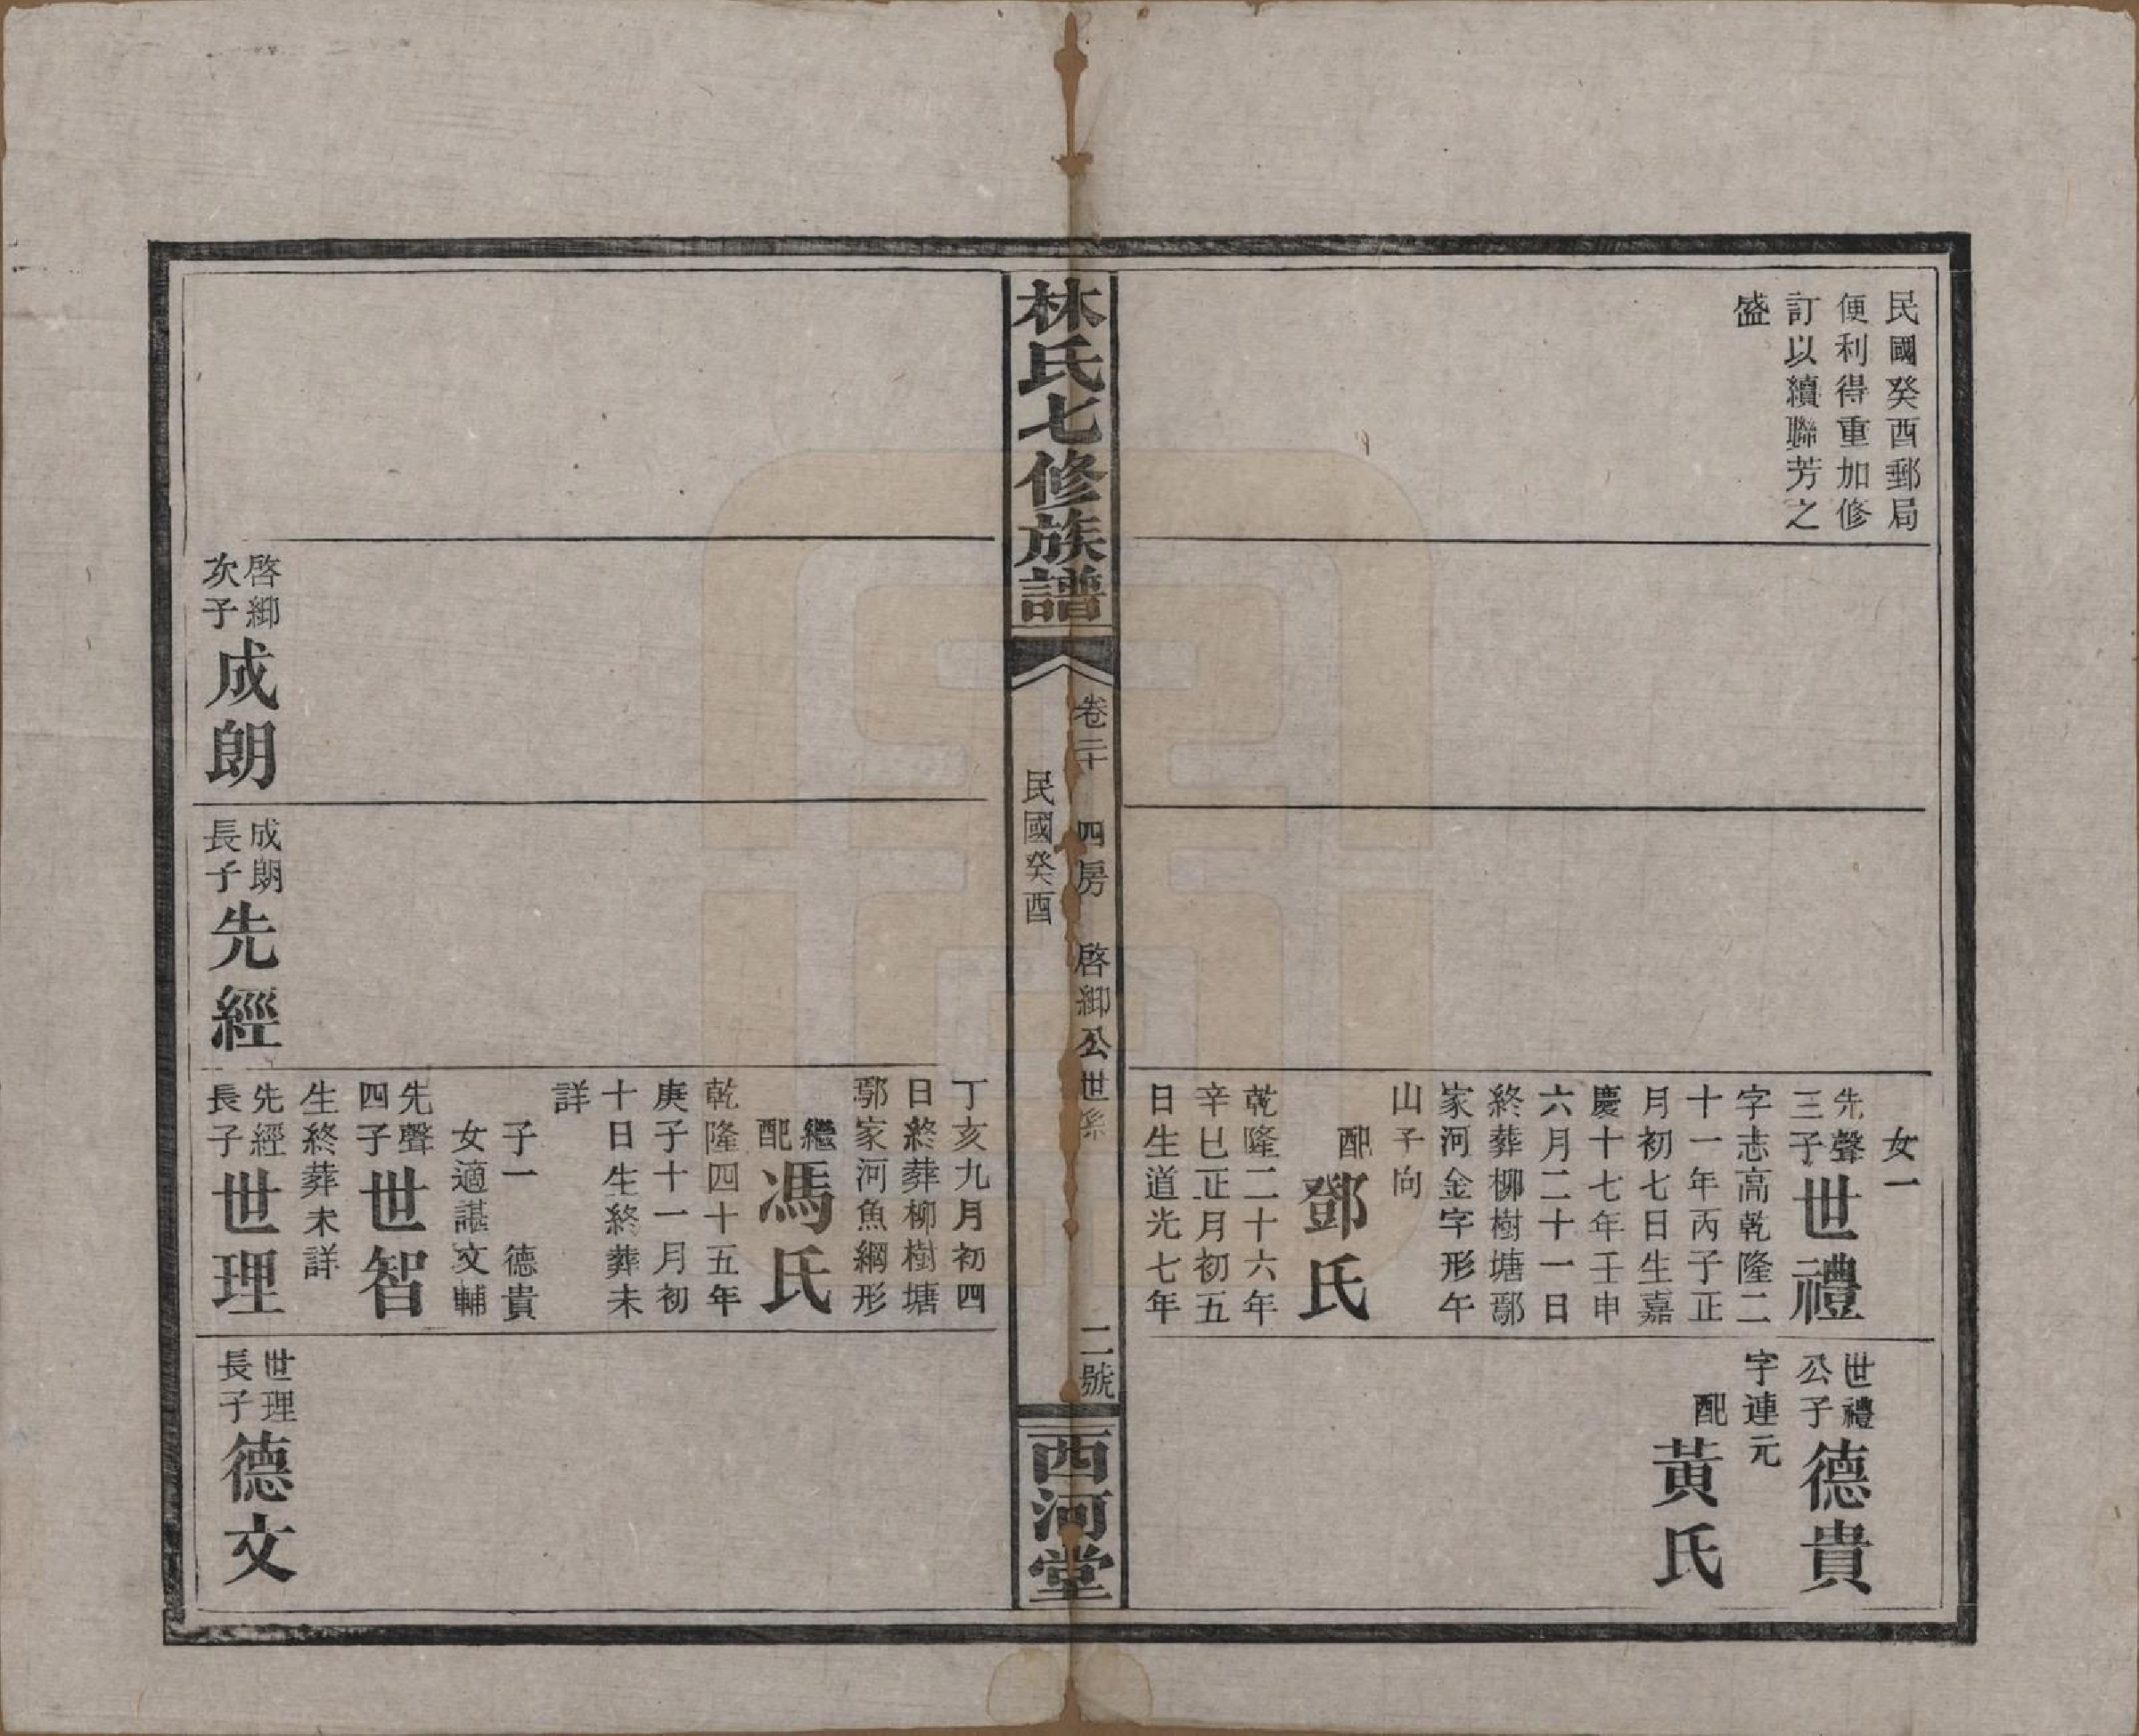 民國癸酉郵局
便利得重加修
訂以續聯芳之
盛
女一
先聲
三子
世禮
字志高乾隆二
十一年丙子正
月初七日生嘉
慶十七年壬申
六月二十一日
終葬柳樹塘鄢
家河金字形午
山子向
配
鄧氏
乾隆二十六年
辛巳正月初五
日生道光七年
世禮
公子
德貴
字連元
配
黃氏
林氏七修族譜
卷二十 四房 啓鄉公世系 二號
民國癸酉
西河堂
丁亥九月初四
日終葬柳樹塘
鄢家河魚網形
繼
配
馮氏
乾隆四十五年
庚子十一月初
十日生終葬未
詳
子一 德貴
女適諶文輔
先聲
四子
世智
生終葬未詳
啓鄉
次子
成朗
成朗
長子
先經
先經
長子
世理
世理
長子
德文